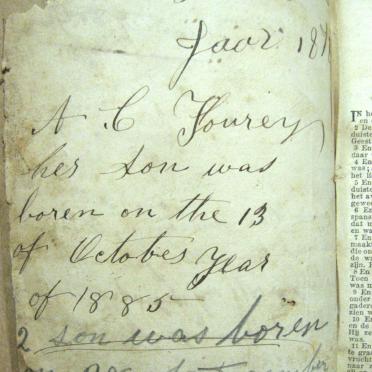 Jaor 187
A C Fourey
her son was
boren on the 13
of Octobes year
of 1885
2 son was boren
IN he
en
2 De
duiste
Geest
3 En
daar
4 En
was;
het li
5 En
duiste
het av
gewe
6 En
spans
dat
en wa
7 En
maakt
die on
de wa
zijn.
8 En
Toen
was m
9 En
onder
gader
zien w
10 En
en de
Hij ze
was.
11 En
te gra
vrucht
naar